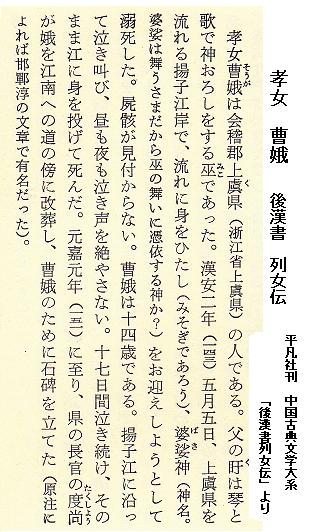 孝女　曹娥　　後漢書　列女伝
平凡社刊　中国古典文学大系
「後漢書列女伝」より
孝女曹娥は会稽郡上虞県（浙江省上虞県）の人である。父の盱は琴と
歌で神おろしをする巫であった。漢安二年（一四三）五月五日、上虞県を
流れる揚子江岸で、流れに身をひたし（みそぎであろう）、婆娑神（神名。
婆娑は舞うさまだから巫の舞いに憑依する神か？）をお迎えしようとして
溺死した。屍骸が見付からない。曹娥は十四歳である。揚子江に沿っ
て泣き叫び、昼も夜も泣き声を絶やさない。十七日間泣き続け、その
まま江に身を投げて死んだ。元嘉元年（一五一）に至り、県の長官の度尚
が娥を江南への道の傍に改葬し、曹娥のために石碑を立てた（原注に
よれば邯鄲淳の文章で有名だった）。